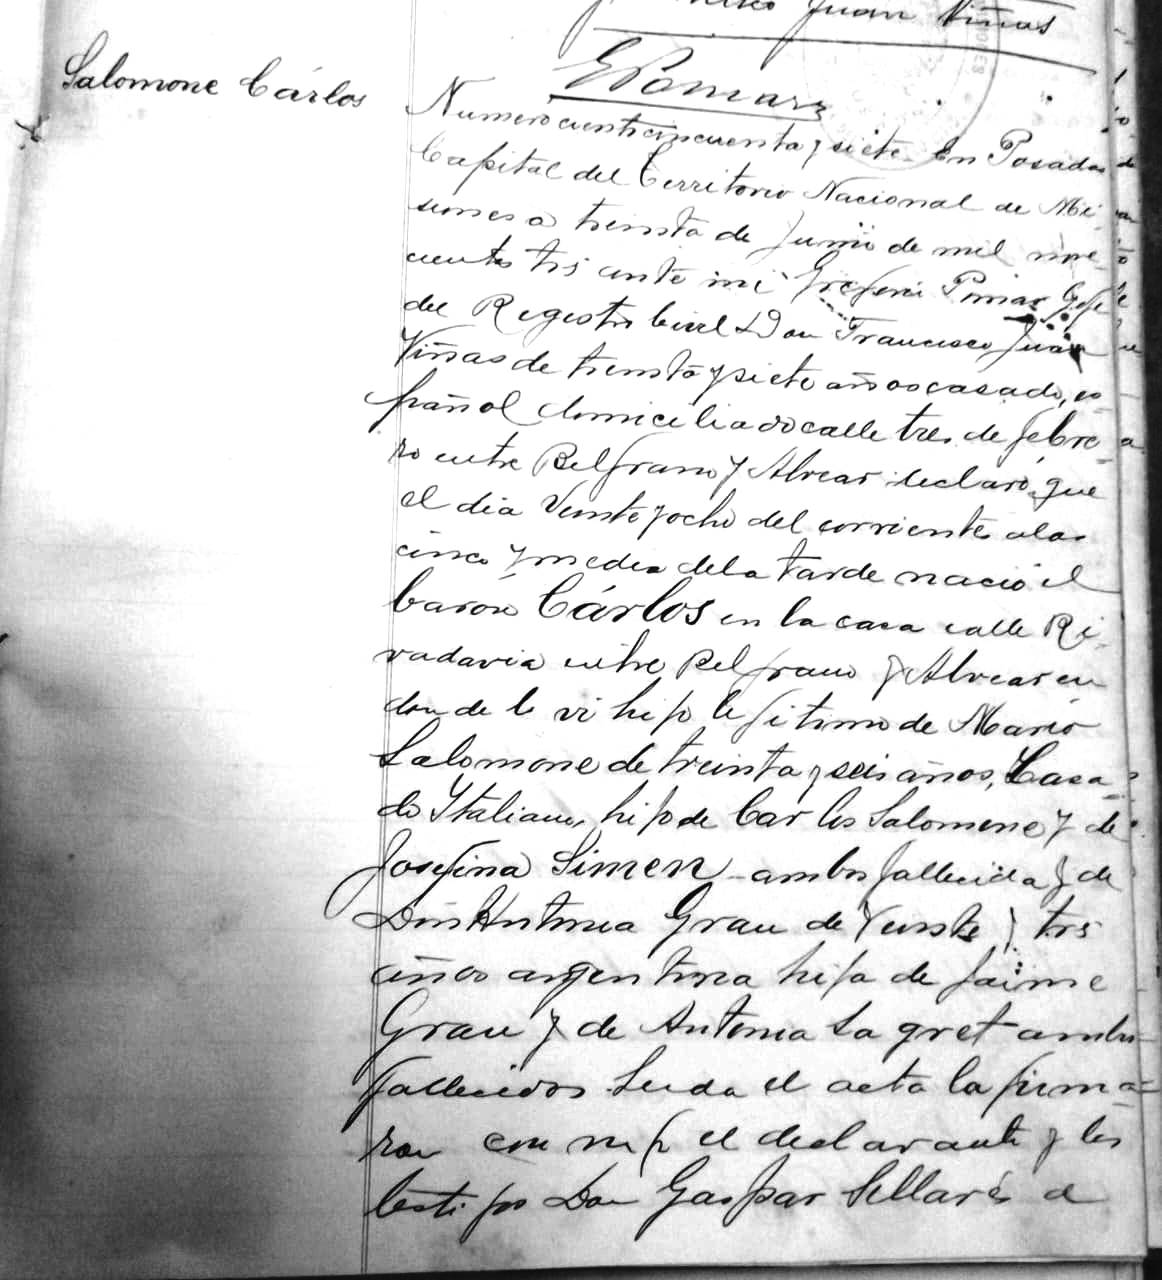 Juan Viñas
Salomone Cárlos
Numero cientocincuenta y siete En Posadas
Capital del Territorio Nacional de Mi-
siones a treinta de Junio de mil nove-
cientos tres ante mi Gefe
del Registro Civil Don Francisco Juan
Viñas de treinta y siete años casado, es-
pañol domiciliado calle tres de febre-
ro entre Belgrano y Alvear declaró que
el dia Veinte y ocho del corriente a las
cinco y media de la tarde nació el
baron Cárlos en la casa calle Ri-
vadavia entre Belgrano y Alvear en
donde le vi hijo legitimo de Mario
Salomone de treinta y seis años, Casa-
do Italiano, hijo de Carlos Salomone y de
Josefina Simen ambos fallecidos y de
Doña Antonia Grau de Veinte y tres
años argentina hija de Jaime
Grau y de Antonia Sagret ambos
fallecidos. Leida el acta la firma-
ron con migo el declarante y los
testigos Don Gaspar Sellarés de